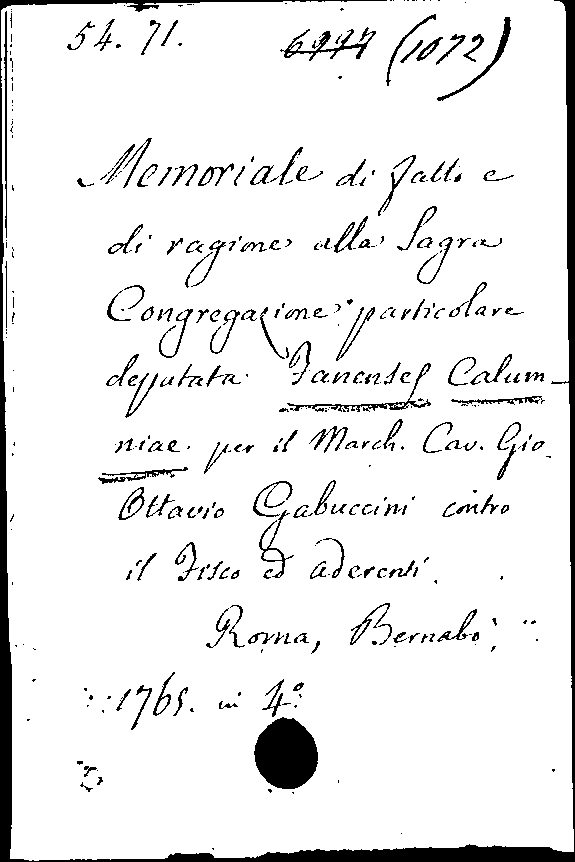 54. 71. 6977 (1072)
Memoriale di fatto e
di ragione alla Sagra
Congregazione particolare
deputata Fanenses Calum-
niae per il March. Cav. Gio.
Ottavio Gabuccini contro
il Fisco ed aderenti.
Roma, Bernabò,
1765. in 4º